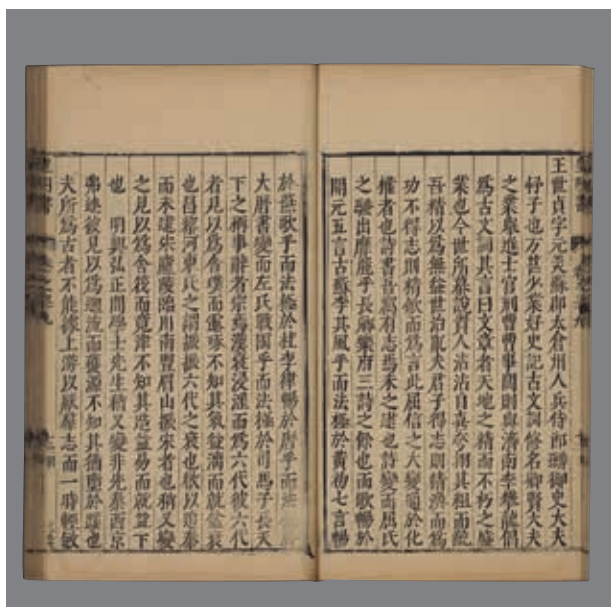 王世貞字元美蘇郡太倉州人兵侍郎御史大夫
忬子也方甚少業好史記古文詞修名卿賢大夫
之業舉進士官刑曹曹事閒則與濟南李攀龍倡
為古文詞其言曰文章者天地之精而不朽之盛
業也今世所慕說貴人沾沾自喜
吾精以為無益世治龍夫君子得志則精渙而為
功不得志則精斂而為言此屈信之大變通於化
權者也詩書吾寫有志焉未之逮也詩變而屈氏
之騷出靡麗乎長卿樂府三詩之餘也而歌暢於
開元五言古蘇李其風乎而法極於黃初七言暢
於燕歌乎而法極於杜李律暢於唐乎而法
大曆書變而左氏戰國乎而法極於司馬子長天
下之稱事辭者宗焉漢衰浸淫而為六代彼六代
者見以為舍璞而琢不知其氣益漓而就益衰
也昌黎河東氏之謂振振六代之衰也彼以追秦
而未逮宋廬陵臨川南豐眉山振宋者也稍又變
之見以為舍筏而竟津不知其造益易而就益下
也 明興弘正間學士先生稍又變非先秦西京
弗述彼見以為溯流而獲源不知其猶墮於蹊也
夫所為古者不能據上游以厭群志而一時輕敏